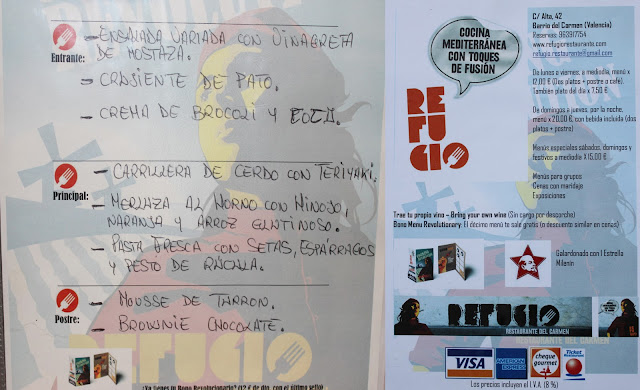 Entrante:
- ENSALADA VARIADA CON VINAGRETA
DE MOSTAZA.
- CRUJIENTE DE PATO.
- CREMA DE BROCOLI Y
Principal:
- CARRILLERA DE CERDO CON TERIYAKI.
- MERLUZA AL HORNO CON HINOJO,
NARANJA Y ARROZ GLUTINOSO.
- PASTA FRESCA CON SETAS, ESPÁRRAGOS
Y PESTO DE RÚCULA.
Postre:
- MOUSSE DE TURRON.
- BROWNIE CHOCOLATE.
REFUGIO
¿Ya tienes tu Bono Revolucionario? (12 € de dto. con el último sello)
COCINA
MEDITERRÁNEA
CON TOQUES
DE FUSIÓN
RE
FU
GIO
C/ Alta, 42
Barrio del Carmen (Valencia)
Reservas: 963917754
www.refugiorestaurante.com
refugio.restaurante@gmail.com
De lunes a viernes, a mediodía, menú x
12,00 € (Dos platos + postre o café).
También plato del día x 7,50 €
De domingo a jueves, por la noche,
menú x 20,00 €, con bebida incluida (dos
platos + postre)
Menús especiales sábados, domingos y
festivos a mediodía X 15,00 €
Menús para grupos
Cenas con maridaje
Exposiciones
Trae tu propio vino – Bring your own wine (Sin cargo por descorche)
Bono Menu Revolucionary: El décimo menú te sale gratis (o descuento similar en cenas)
Galardonado con 1 Estrella
Milenin
REFUGIO
RESTAURANTE DEL CARMEN
VISA
AMERICAN
EXPRESS
cheque
gourmet
Ticket
Restaurant
Los precios incluyen el I.V.A. (8 %)